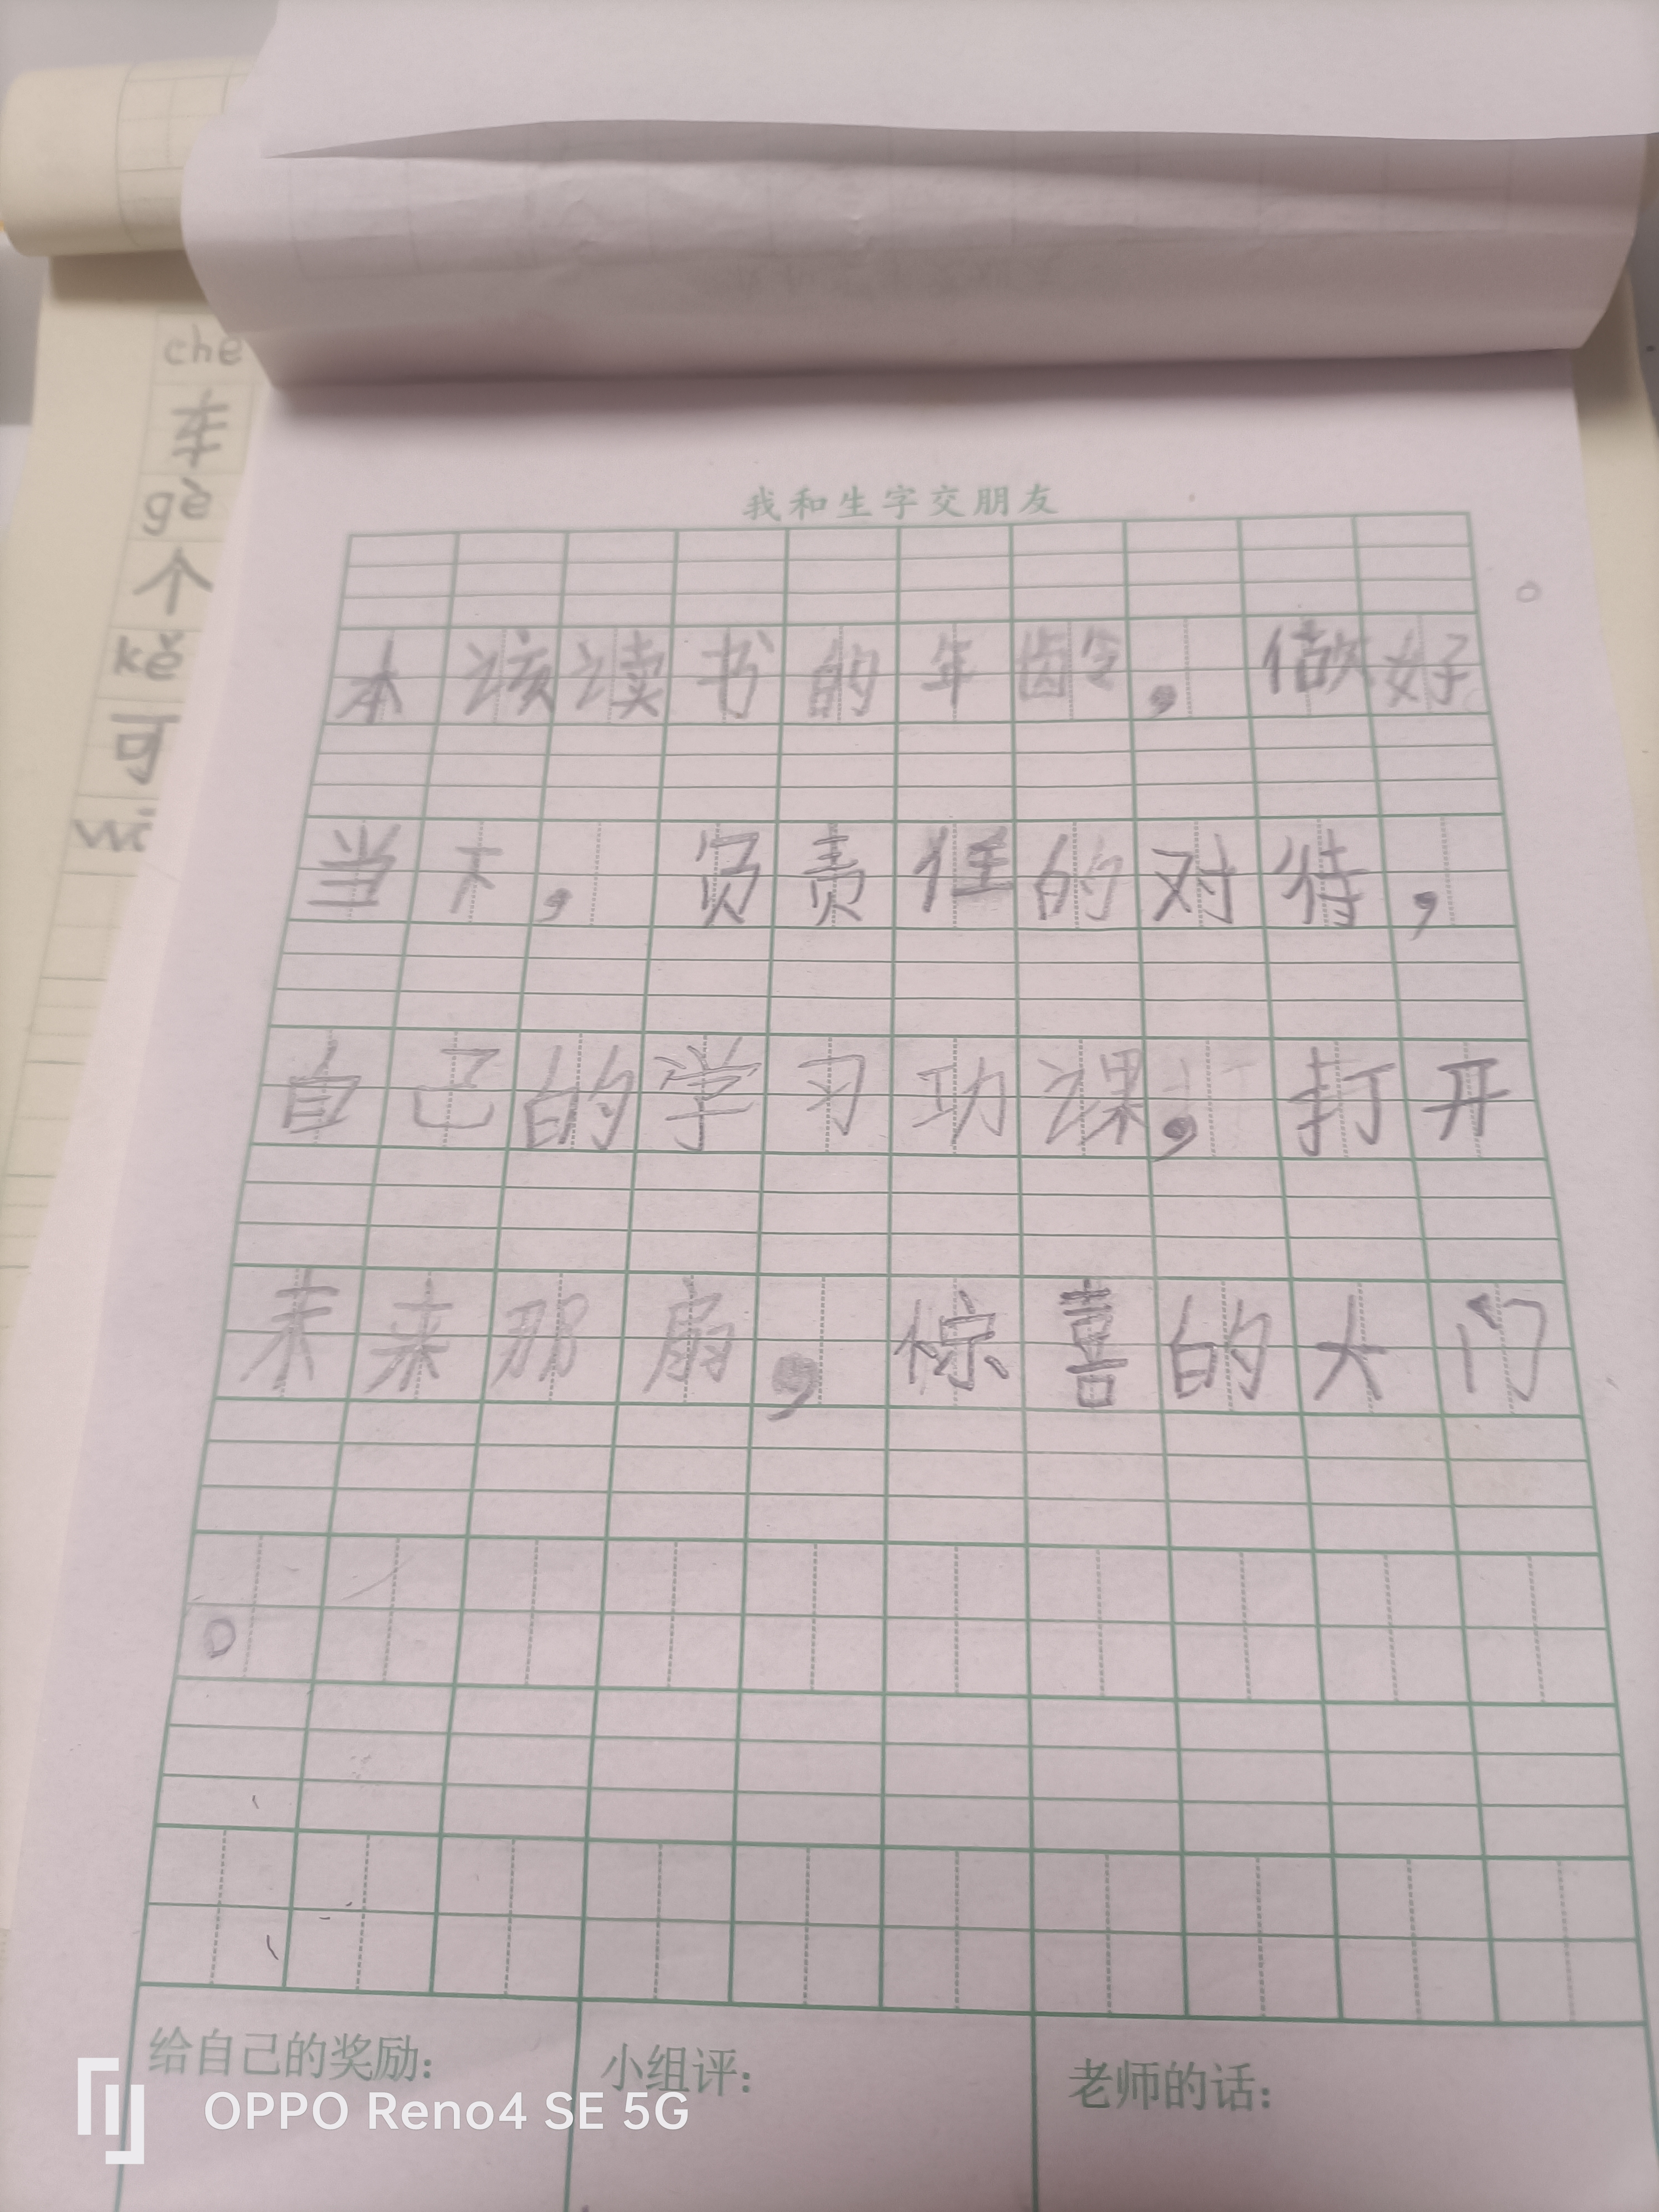 che
车
gè
个
kě
可
我和生字交朋友
本该读书的年龄，做好
当下，负责任的对待，
自己的学习功课，打开
未来那扇，惊喜的大门
。
给自己的奖励：
小组评：
老师的话：
OPPO Reno4 SE 5G